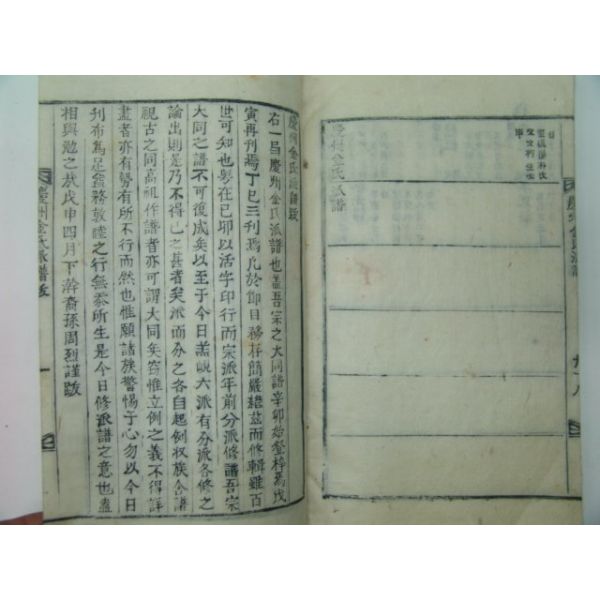 慶州金氏派譜
慶州金氏派譜跋
右一弓慶州金氏派譜也盖吾宗之大同譜辛卯始鋟梓焉戊
寅再刊焉丁巳三刊焉凡於節目務存簡嚴繼玆而修輯雖百
世可知也
在己卯以活字印行而宗派年前分派修譜吾宗
大同之譜不可復成矣以至于今日
六派有分派各修之
論出則是乃不得已之甚者矣派而分之各自起例收族合譜
視古之同高祖作譜者亦可謂大同矣
惟立例之義不得詳
盡者亦有勢有所不行而然也惟願諸族警惕于心勿以今日
刊布為足益務敦睦之行無忝所生是今日修派譜之意也盍
相與勉之哉戊申四月下澣裔孫周烈謹跋
慶州金氏派譜跋
一